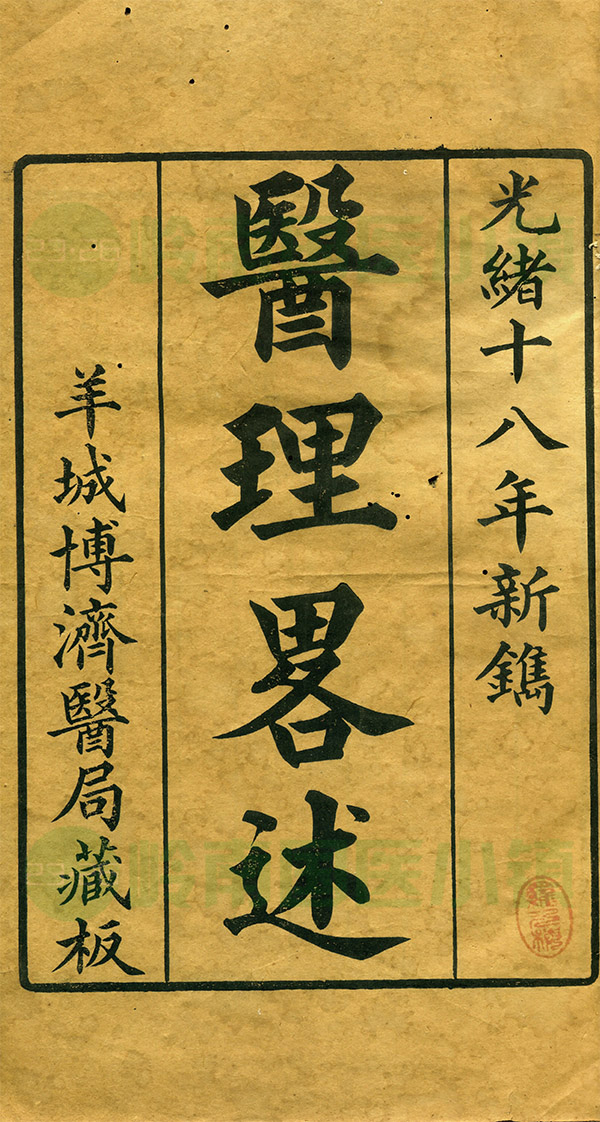 光緒十八年新鐫
醫理畧述
羊城博濟醫局藏板